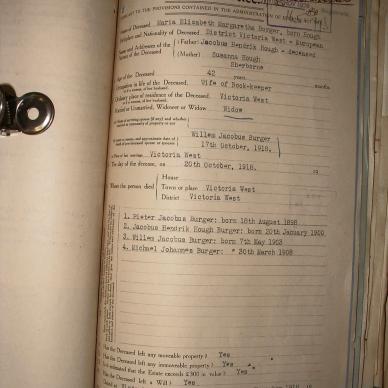 SUBJECT TO THE PROVISIONS CONTAINED IN THE ADMINISTRATION OF ESTATES ACT
Name of Deceased Maria Elizabeth Margaretha Burger, born Hough
Birthplace and Nationality of Deceased District Victoria West - European
Names and Addresses of the Parents of the Deceased
(Father) Jacobus Hendrik Hough - deceased
(Mother) Susanna Hough
Sherborne
Age of the Deceased 42 years months
Occupation in life of the Deceased Wife of Book-keeper
Ordinary place of residence of the Deceased Victoria West
Married or Unmarried, Widower or Widow Widow
Name of surviving spouse (if any) and whether married in community of property or not
Willem Jacobus Burger
17th October, 1918.
Place of last marriage Victoria West
The day of the decease, on 20th October, 1918.
House
Where the person died
Town or place Victoria West
District Victoria West
1. Pieter Jacobus Burger: born 18th August 1898
2. Jacobus Hendrik Hough Burger: born 20th January 1900
3. Willem Jacobus Burger: born 7th May 1903
4. Michael Johannes Burger: " 30th March 1908
Has the Deceased left any moveable property? Yes
Has the Deceased left any immoveable property? Yes
Is it estimated that the Estate exceeds £300 in value? Yes
Has the Deceased left a Will? Yes